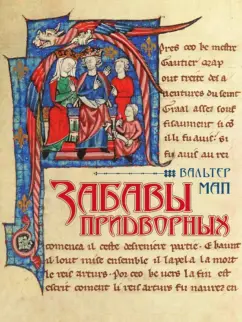 Pres ceo ke mestre
Gautier Map
out treite des a
uentures du seint
Graal assez souf
fisaument si co
il li fu auis. si
fu auis au rei
ВАЛЬТЕР
МАП
ЗАБАВЫ
ПРИДВОРНЫХ
comenca il ceste desreniere partie. E kaunt
il lout mise ensemble il lapela la mort
le reis arturs. Por ceo ke vers la fin est
escrit coment li reis arturs fu naurez en